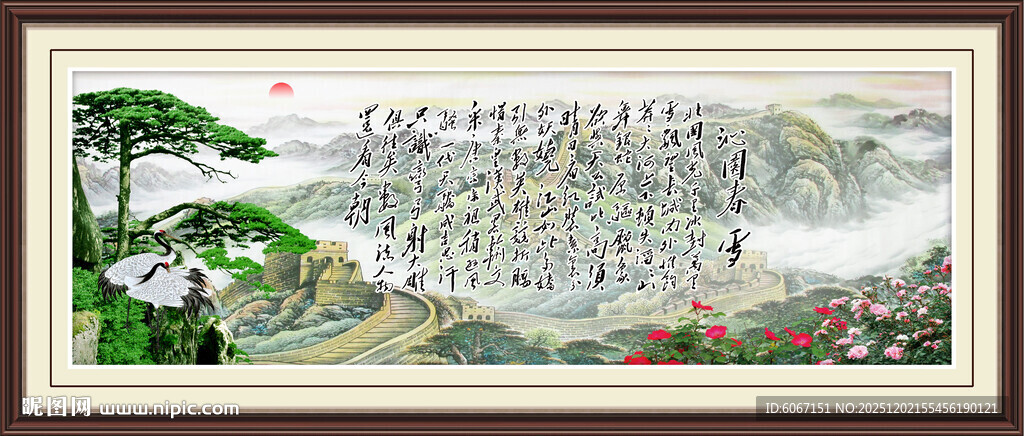 沁園春 雪
北國風光千里冰封萬里
雪飄望长城内外惟餘
莽莽大河上下頓失滔滔山
舞銀蛇原驅臘象
欲與天公試比高須
晴日看红装素裹分
外妖嬈 江山如此多嬌
引無數英雄競折腰
惜秦皇漢武略輸文
采唐宗宋祖稍遜風
騷一代天驕成吉思汗
只識彎弓射大雕
俱往矣數風流人物
還看今朝
昵图网 www.nipic.com
ID:6067151 NO:20251202155456190121